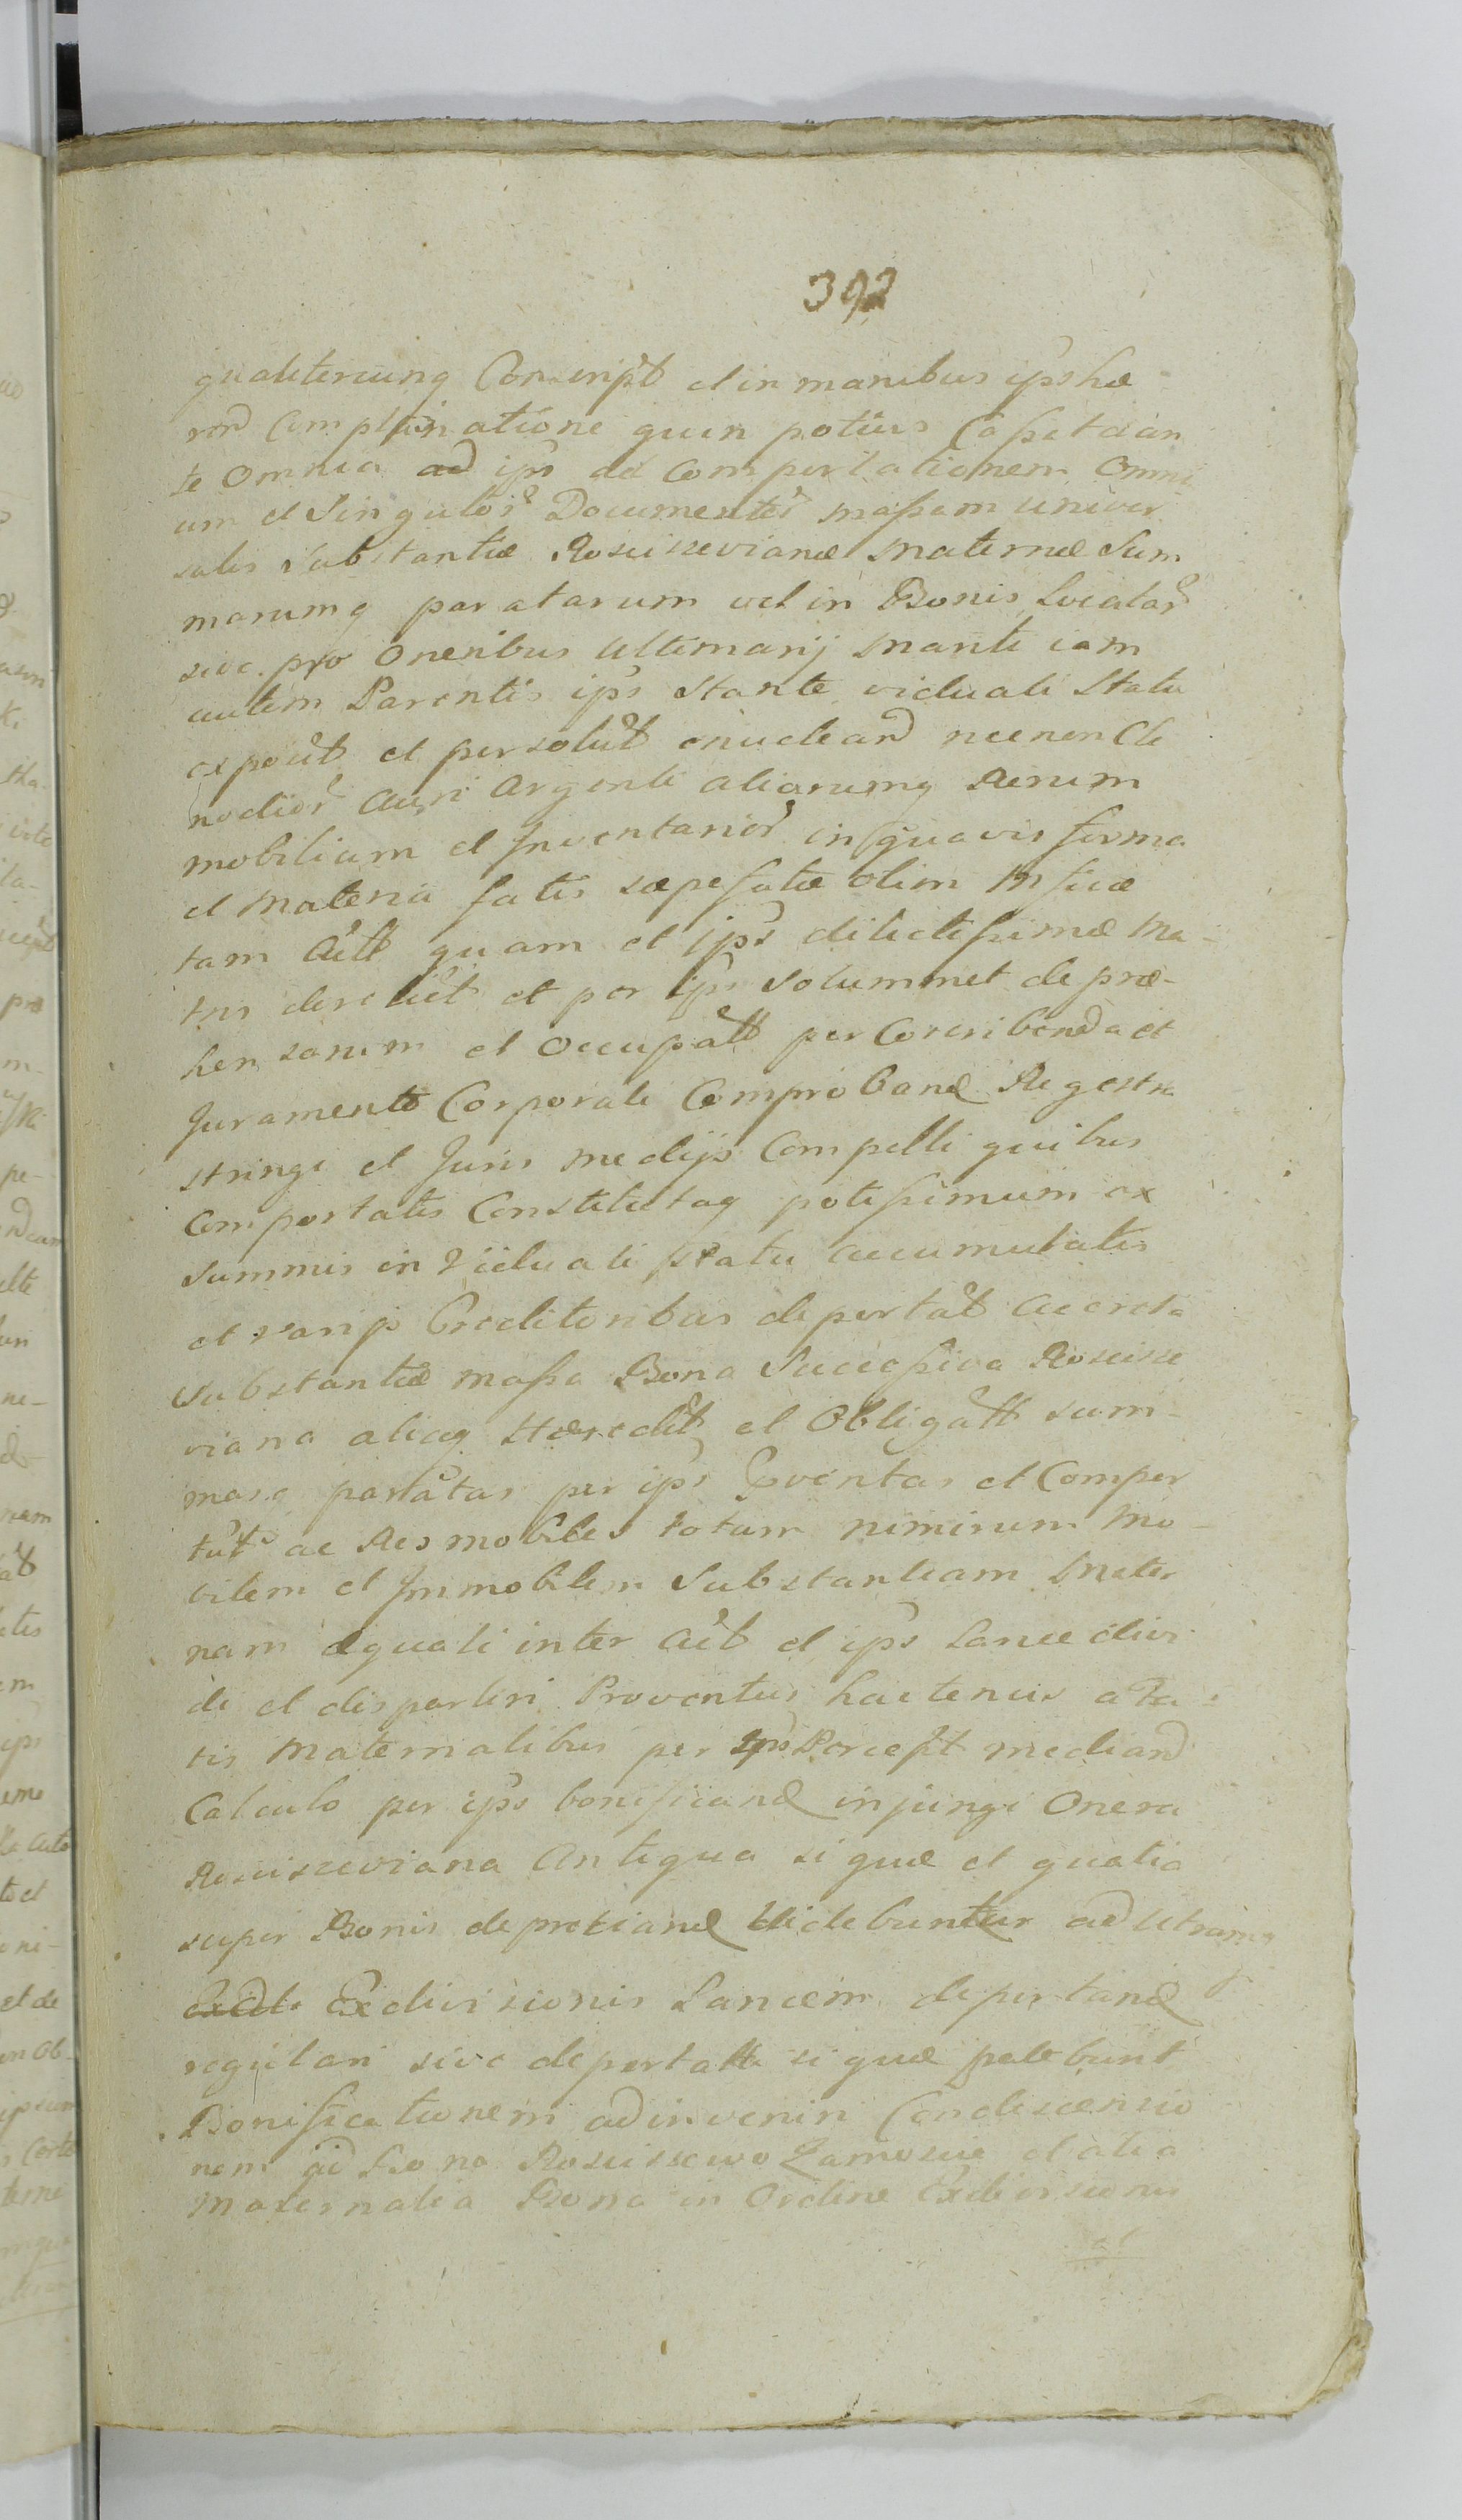 392
qualitercunq Conscript et in manibus ips hæ-
rend Complanatione quin potius Cassat dan
te Omnia ad ips ad Comportationem Omni
um et Singulor Documentor massam univer
salis Substantiæ Roscisseviana Maternæ Sum
marumq paratarum vel in Bonis Locatar
sive pro Oneribus Ultimarij Manti iam
autem Parentis ips stante viduali Statu
exposit et persolut enucleand necnon Cle
nodior Auri Argenti aliarumq Rerum
mobilium et Inventarior in quavis forma
et Materia fatis sæpefatæ olim
tam Actt quam et Ips dilectissimæ Ma-
tris derelict et per Ips solummet depræ-
hensarum et Occupatt per Conscribenda et
Juramento Corporali Comproband Regestra
stringi et Juris medijs Compelli quibus
Comportatis Constitutaq potissimum ex
Summis in Viduali statu accumulatis
et varijs Creditoribus deportat accreta
Substantiæ massa Bona Successiva Roscisse
viana aliaq Hæredit et Obligatt sum-
masq paratas per ips Proventas et Comper
tat ac Res mobiles totam nimirum Mo-
bilem et Immobilem Substantiam Mater
nam æquali inter Act et ips Lance divi
di et dispartiri Proventus hactenus a Ta-
tis Maternalibus per Ips Percept mediand
Calculo per ips bonificand injungi Onera
Roscisseviana Antiqua si quæ et qualia
super Bonis depretiand videbuntur ad utramq
Exdivisionis Lancem deportand
regulari sive deportatta si quæ patebunt
Bonificationem adinvenin Condescensio
nem ad Bona Roscissewo Zamoscie et alia
Maternalia Bona in Ordine Exdivisionis
et